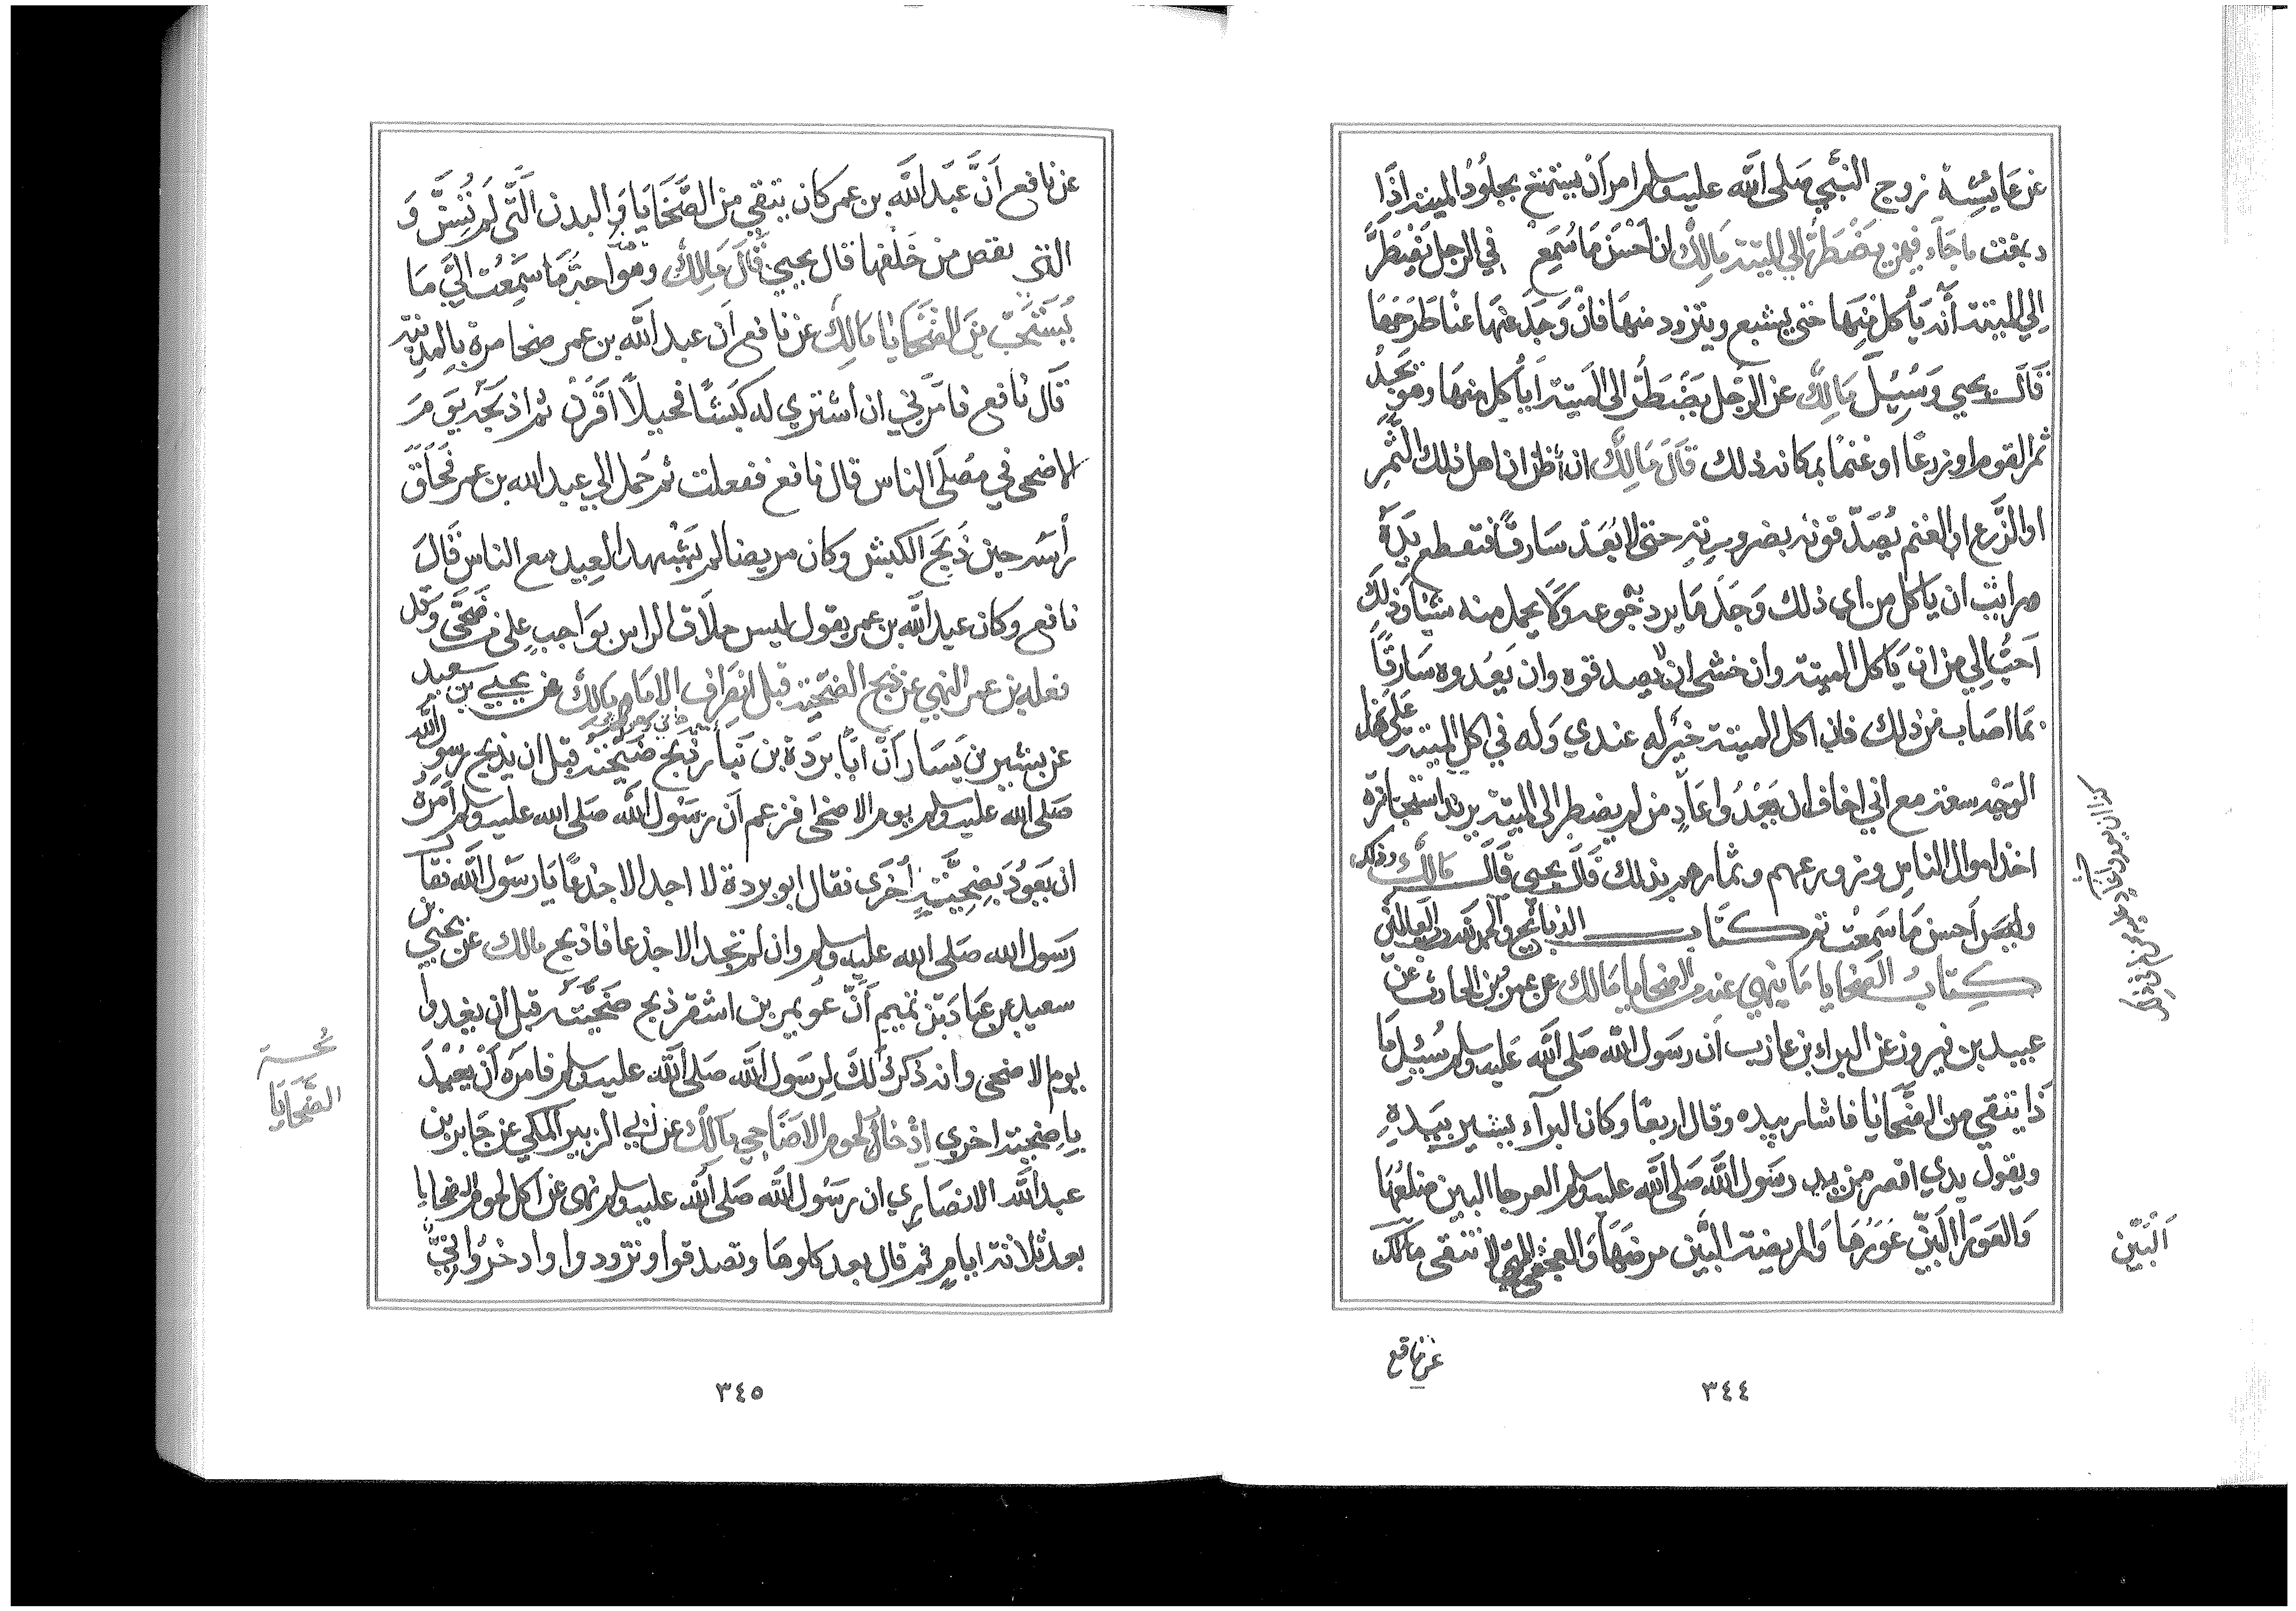 عن عايشة زوج النبي صلى الله عليه وسلم امر أن يستمتع بجلود الميتة اذا
دبغت ما جاء فيمن يضطر الى الميتة مالك ان احسن ما سمع في الرجل يضطر
الي الميتة أنه يأكل منها حتى يشبع ويتزود منها فان وجد عنها غنا طرحها
قال يحيى وسئل مالك عن الرجل يضطر الى الميتة اياكل منها وهو يجد
ثمر القوم او زرعا او غنما بمكانه ذلك قال مالك ان ظن ان اهل ذلك الثمر
او الزرع او الغنم يصدقونه بضرورته حتى لا يعد سارقا فتقطع يده
رايت ان ياكل من اي ذلك وجد ما يرد جوعه ولا يحمل منه شيئا وذلك
احب الي من ان ياكل الميتة وان خشي ان لا يصدقوه وان يعدوه سارقا
بما اصاب من ذلك فان اكل الميتة خير له عندي وله في اكل الميتة على هذا
الوجه سعة مع اني اخاف ان يعدوا عاد من لم يضطر الى الميتة يريد استجازة
اخذ اموال الناس وزروعهم وثمارهم بذلك قال يحيى قال مالك وذلك
احسن ما سمعت تم كتاب الذبائح والحمد لله رب العالمين
كتاب الضحايا ما ينهى عنه من الضحايا مالك عن عمرو بن الحارث عن
عبيد بن فيروز عن البراء بن عازب أن رسول الله صلى الله عليه وسلم سئل ما
ذا يتقي من الضحايا فاشار بيده وقال اربعا وكان البراء يشير بيده
ويقول يدي اقصر من يد رسول الله صلى الله عليه وسلم العرجا البين ضلعها
والعورا البين عورها والمريضة البين مرضها والعجفى التي لا تنقى مالك
البين
عن نافع
٣٤٤
عن نافع أن عبد الله بن عمر كان يتقي من الضحايا والبدن التي لم تسن و
التي نقص من خلقها قال يحيى قال مالك وهو احب ما سمعت الي ما
يستحب من الضحايا مالك عن نافع ان عبد الله بن عمر ضحا مرة بالمدينة
قال نافع فامرني ان اشتري له كبشا فحيلا اقرن ثم اذبحه يوم
الاضحى في مصلى الناس قال نافع ففعلت ثم حمل الي عبد الله بن عمر فحلق
رأسه حين ذبح الكبش وكان مريضا لم يشهد العيد مع الناس قال
نافع وكان عبد الله بن عمر يقول ليس حلاق الراس بواجب على من ضحى وقد
فعله بن عمر النهي عن ذبح الضحية قبل انصراف الامام مالك عن يحيى بن سعيد
عن بشير بن يسار أن ابا بردة بن نيار ذبح ضحيته قبل ان يذبح رسول الله
صلى الله عليه وسلم يوم الاضحى فزعم ان رسول الله صلى الله عليه وسلم امره
ان يعود بضحية أخرى فقال ابو بردة لا اجد الا جذعا يا رسول الله فقال
رسول الله صلى الله عليه وسلم وان لم تجد الا جذعا فاذبح مالك عن يحيى بن
سعيد عن عباد بن تميم أن عويمر بن اشقر ذبح ضحيته قبل ان يغدوا
يوم الاضحى وانه ذكر ذلك لرسول الله صلى الله عليه وسلم فامره أن يعيد
باضحية اخرى إدخار لحوم الاضاحي مالك عن ابي الزبير المكي عن جابر بن
عبد الله الانصاري ان رسول الله صلى الله عليه وسلم نهى عن اكل لحوم الضحايا
بعد ثلاثة ايام ثم قال بعد كلوها وتصدقوا وتزودوا وادخروا
الضحايا
٣٤٥